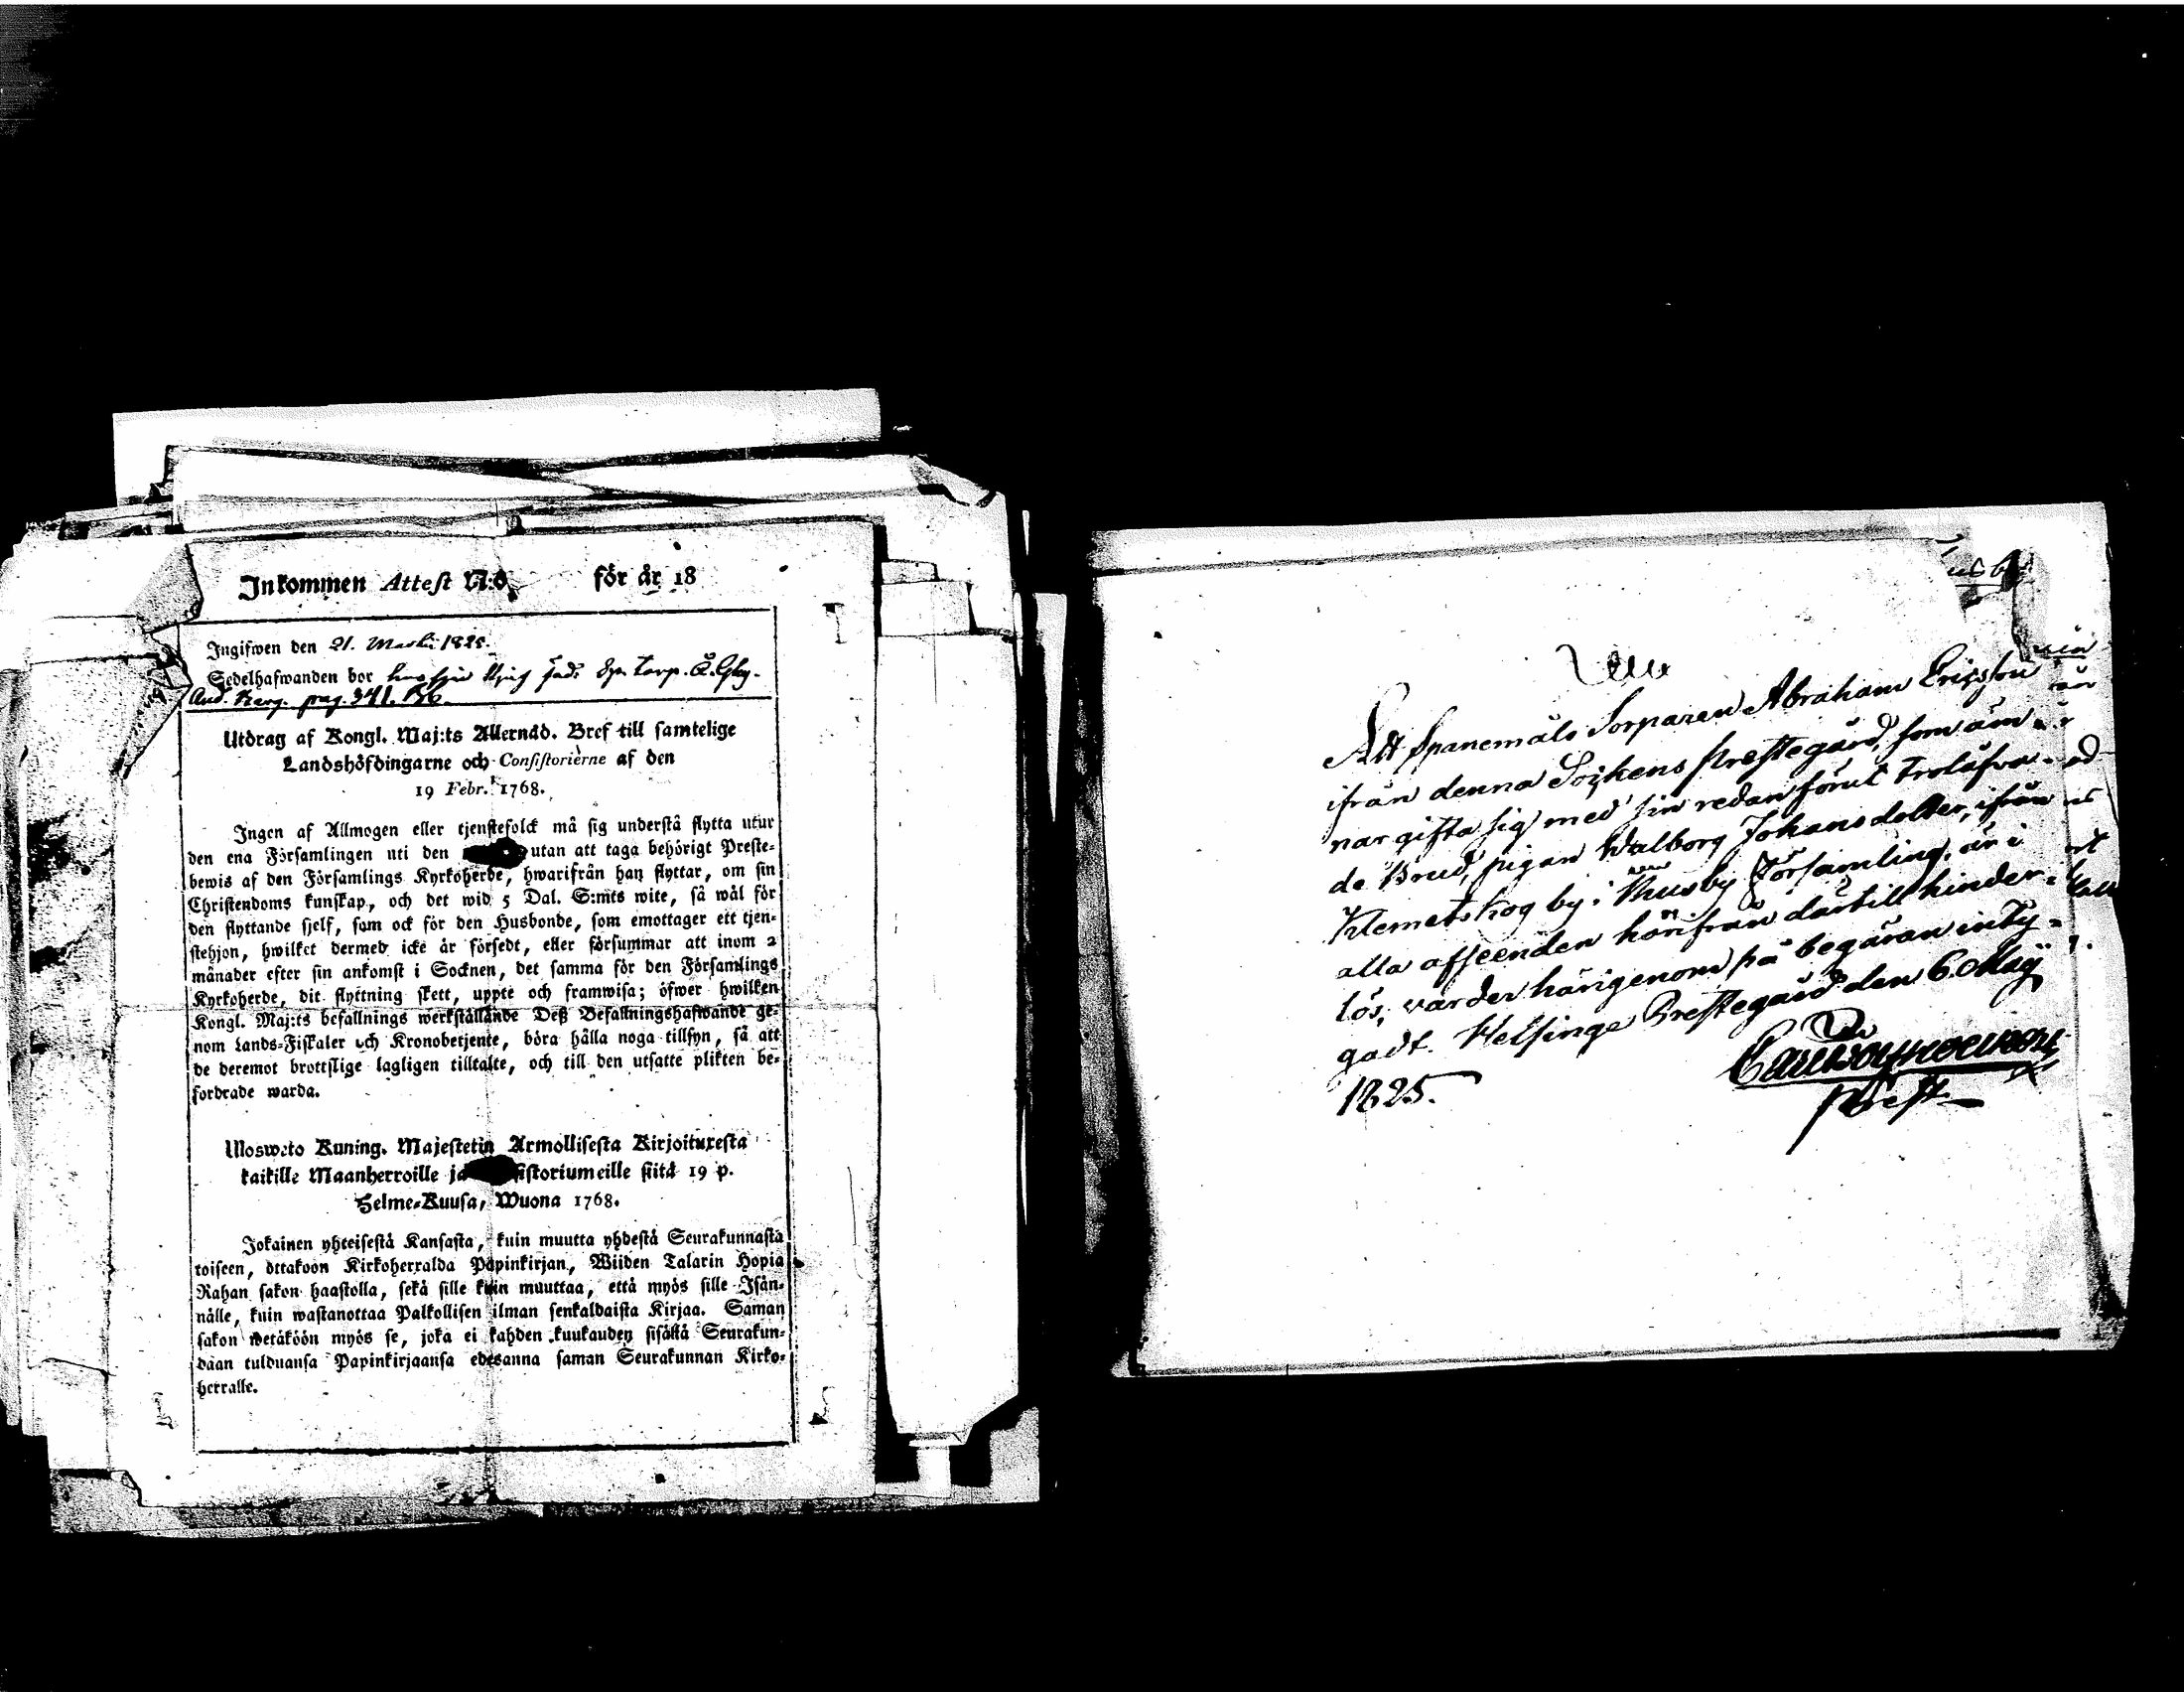 Inkommen Attest N:o för år 18
Ingifwen den 21. Martii 1825.
Sedelhafwanden bor
pag. 341.
Utdrag af Kongl. Maj:ts Allernåd. Bref till samtelige
Landshöfdingarne och Consistorierne af den
19 Febr. 1768.
Ingen af Allmogen eller tjenstefolck må sig understå flytta utur
den ena Församlingen uti den utan att taga behörigt Preste-
bewis af den Församlings Kyrkoherde, hwarifrån han flyttar, om sin
Christendoms kunskap, och det wid 5 Dal. S:mts wite, så wäl för
den flyttande sjelf, som ock för den Husbonde, som emottager ett tjen-
stehjon, hwilket dermed icke är försedt, eller försummar att inom 2
månader efter sin ankomst i Socknen, det samma för den Församlings
Kyrkoherde, dit flyttning skett, uppte och framwisa; öfwer hwilken
Kongl. Maj:ts befallnings werkställande Deß Befallningshafwande ge-
nom Lands-Fiskaler och Kronobetjente, böra hålla noga tillsyn, så att
de deremot brottslige lagligen tilltalte, och till den utsatte plikten be-
fordrade warda.
Ulosweto Kuning. Majestetin Armollisesta Kirjoituxesta
kaikille Maanherroille ja istoriumeille siitä 19 p.
Helme-Kuusa, Wuona 1768.
Jokainen yhteisestä Kansasta, kuin muutta yhdestä Seurakunnasta
toiseen, ottakoon Kirkoherralda Papinkirjan, Wiiden Talarin Hopia
Rahan sakon haastolla, sekä sille kuin muuttaa, että myös sille Isän-
nälle, kuin wastanottaa Palkollisen ilman senkaldaista Kirjaa. Saman
sakon wetäköön myös se, joka ei kahden kuukauden sisällä Seurakun-
daan tulduansa Papinkirjaansa edesanna saman Seurakunnan Kirko-
herralle.
Att Spanemåls Torparen Abraham Ericsson
ifrån denna Sockens Prestegård, som äm-
nar gifta sig med sin redan förut trolåfva-
de Brud, pigan Walborg Johansdotter, ifrån
Klemetskog by i Thusby Församling, är i
alla afseenden härifrån därtill hinder-
lös, varder härigenom på begäran inty-
gadt. Helsinge Prestegård den 6. Maij
1825.